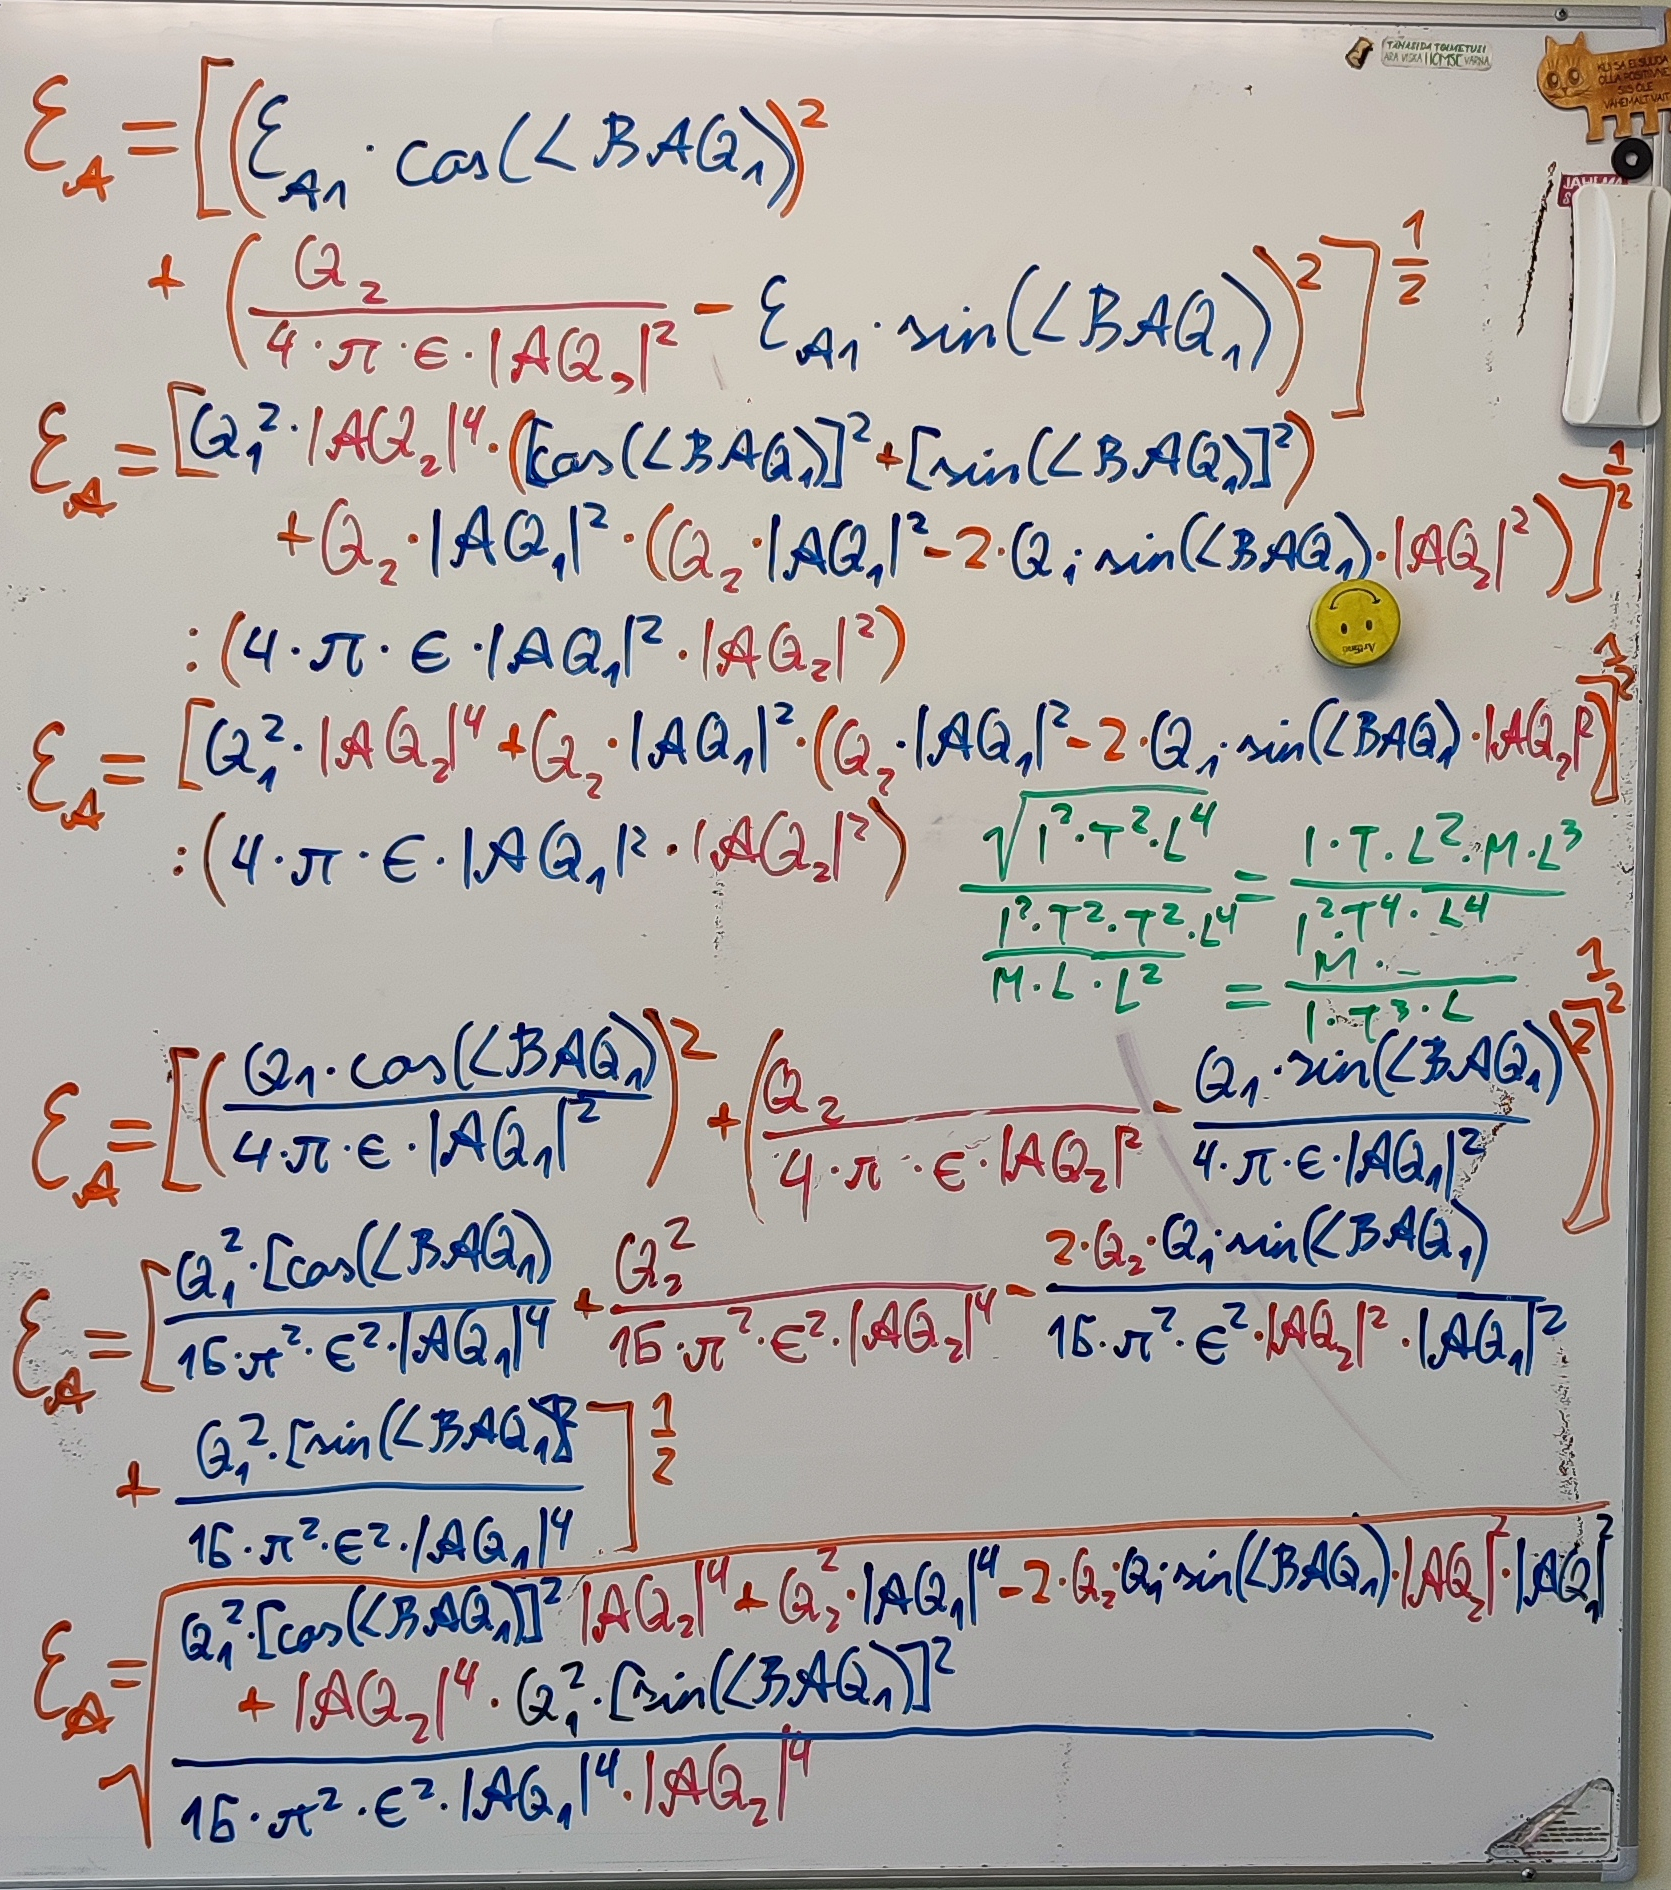 TÄNASIDA TOIMETUSI
ÄRA VISKA HOMSE VARNA
KUI SA EI SUUDA
OLLA POSITIIVNE
SIIS OLE
VÄHEMALT VAIT
ℰ_A = [(ℰ_A1 · cos(∠BAQ₁))²
+ (Q₂ / (4·π·ϵ·|AQ₂|²) − ℰ_A1 · sin(∠BAQ₁))²]^(1/2)
ℰ_A = [Q₁²·|AQ₂|⁴·([cos(∠BAQ₁)]² + [sin(∠BAQ₁)]²)
+ Q₂·|AQ₁|²·(Q₂·|AQ₁|² − 2·Q₁·sin(∠BAQ₁)·|AQ₂|²)]^(1/2)
:(4·π·ϵ·|AQ₁|²·|AQ₂|²)
ℰ_A = [Q₁²·|AQ₂|⁴ + Q₂·|AQ₁|²·(Q₂·|AQ₁|² − 2·Q₁·sin(∠BAQ₁)·|AQ₂|²)]^(1/2)
:(4·π·ϵ·|AQ₁|²·|AQ₂|²)
√(I²·T²·L⁴) / ((I²·T²·T²)/(M·L·L²)·L⁴) = (I·T·L²·M·L³) / (I²·T⁴·L⁴)
= (M·_) / (I·T³·L)
ℰ_A = [((Q₁·cos(∠BAQ₁)) / (4·π·ϵ·|AQ₁|²))² + (Q₂ / (4·π·ϵ·|AQ₂|²) − (Q₁·sin(∠BAQ₁)) / (4·π·ϵ·|AQ₁|²))²]^(1/2)
ℰ_A = [(Q₁²·[cos(∠BAQ₁)) / (16·π²·ϵ²·|AQ₁|⁴) + Q₂² / (16·π²·ϵ²·|AQ₂|⁴) − (2·Q₂·Q₁·sin(∠BAQ₁)) / (16·π²·ϵ²·|AQ₂|²·|AQ₁|²)
+ (Q₁²·[sin(∠BAQ₁)]²) / (16·π²·ϵ²·|AQ₁|⁴)]^(1/2)
ℰ_A = √((Q₁²·[cos(∠BAQ₁)]² |AQ₂|⁴ + Q₂²·|AQ₁|⁴ − 2·Q₂·Q₁·sin(∠BAQ₁)·|AQ₂|²·|AQ₁|²
+ |AQ₂|⁴·Q₁²·[sin(∠BAQ₁)]²)
/ (16·π²·ϵ²·|AQ₁|⁴·|AQ₂|⁴))